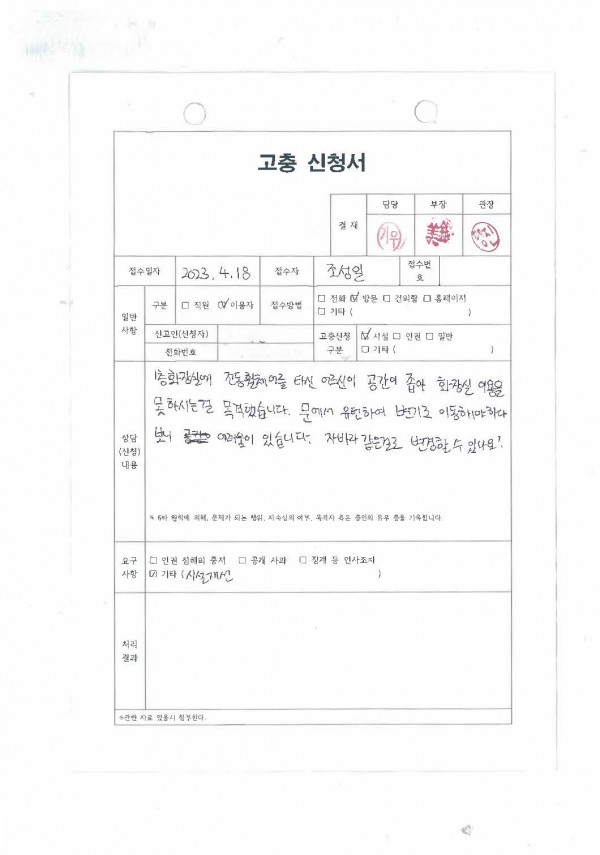 고충 신청서
결 재
담당 부장 관장
접수일자 2023. 4. 18 접수자 조성일 접수번호
일반사항
구분 □ 직원 ☑ 이용자 접수방법 □ 전화 ☑ 방문 □ 건의함 □ 홈페이지
□ 기타 ( )
신고인(신청자) 고충신청 구분 ☑ 시설 □ 인권 □ 일반
전화번호 □ 기타 ( )
상담(신청)내용
1층화장실에 전동휠체어를 타신 어르신이 공간이 좁아 화장실 이용을
못하시는걸 목격했습니다. 문에서 유턴하여 변기로 이동해야하다
보니 어려움이 있습니다. 자바라 같은걸로 변경할 수 있나요?
※ 6하 원칙에 의해, 문제가 되는 행위, 지속성의 여부, 목격자 혹은 증인의 유무 등을 기록합니다.
요구사항
□ 인권 침해의 중지 □ 공개 사과 □ 징계 등 인사조치
☑ 기타 (시설개선 )
처리결과
※관련 자료 있을시 첨부한다.